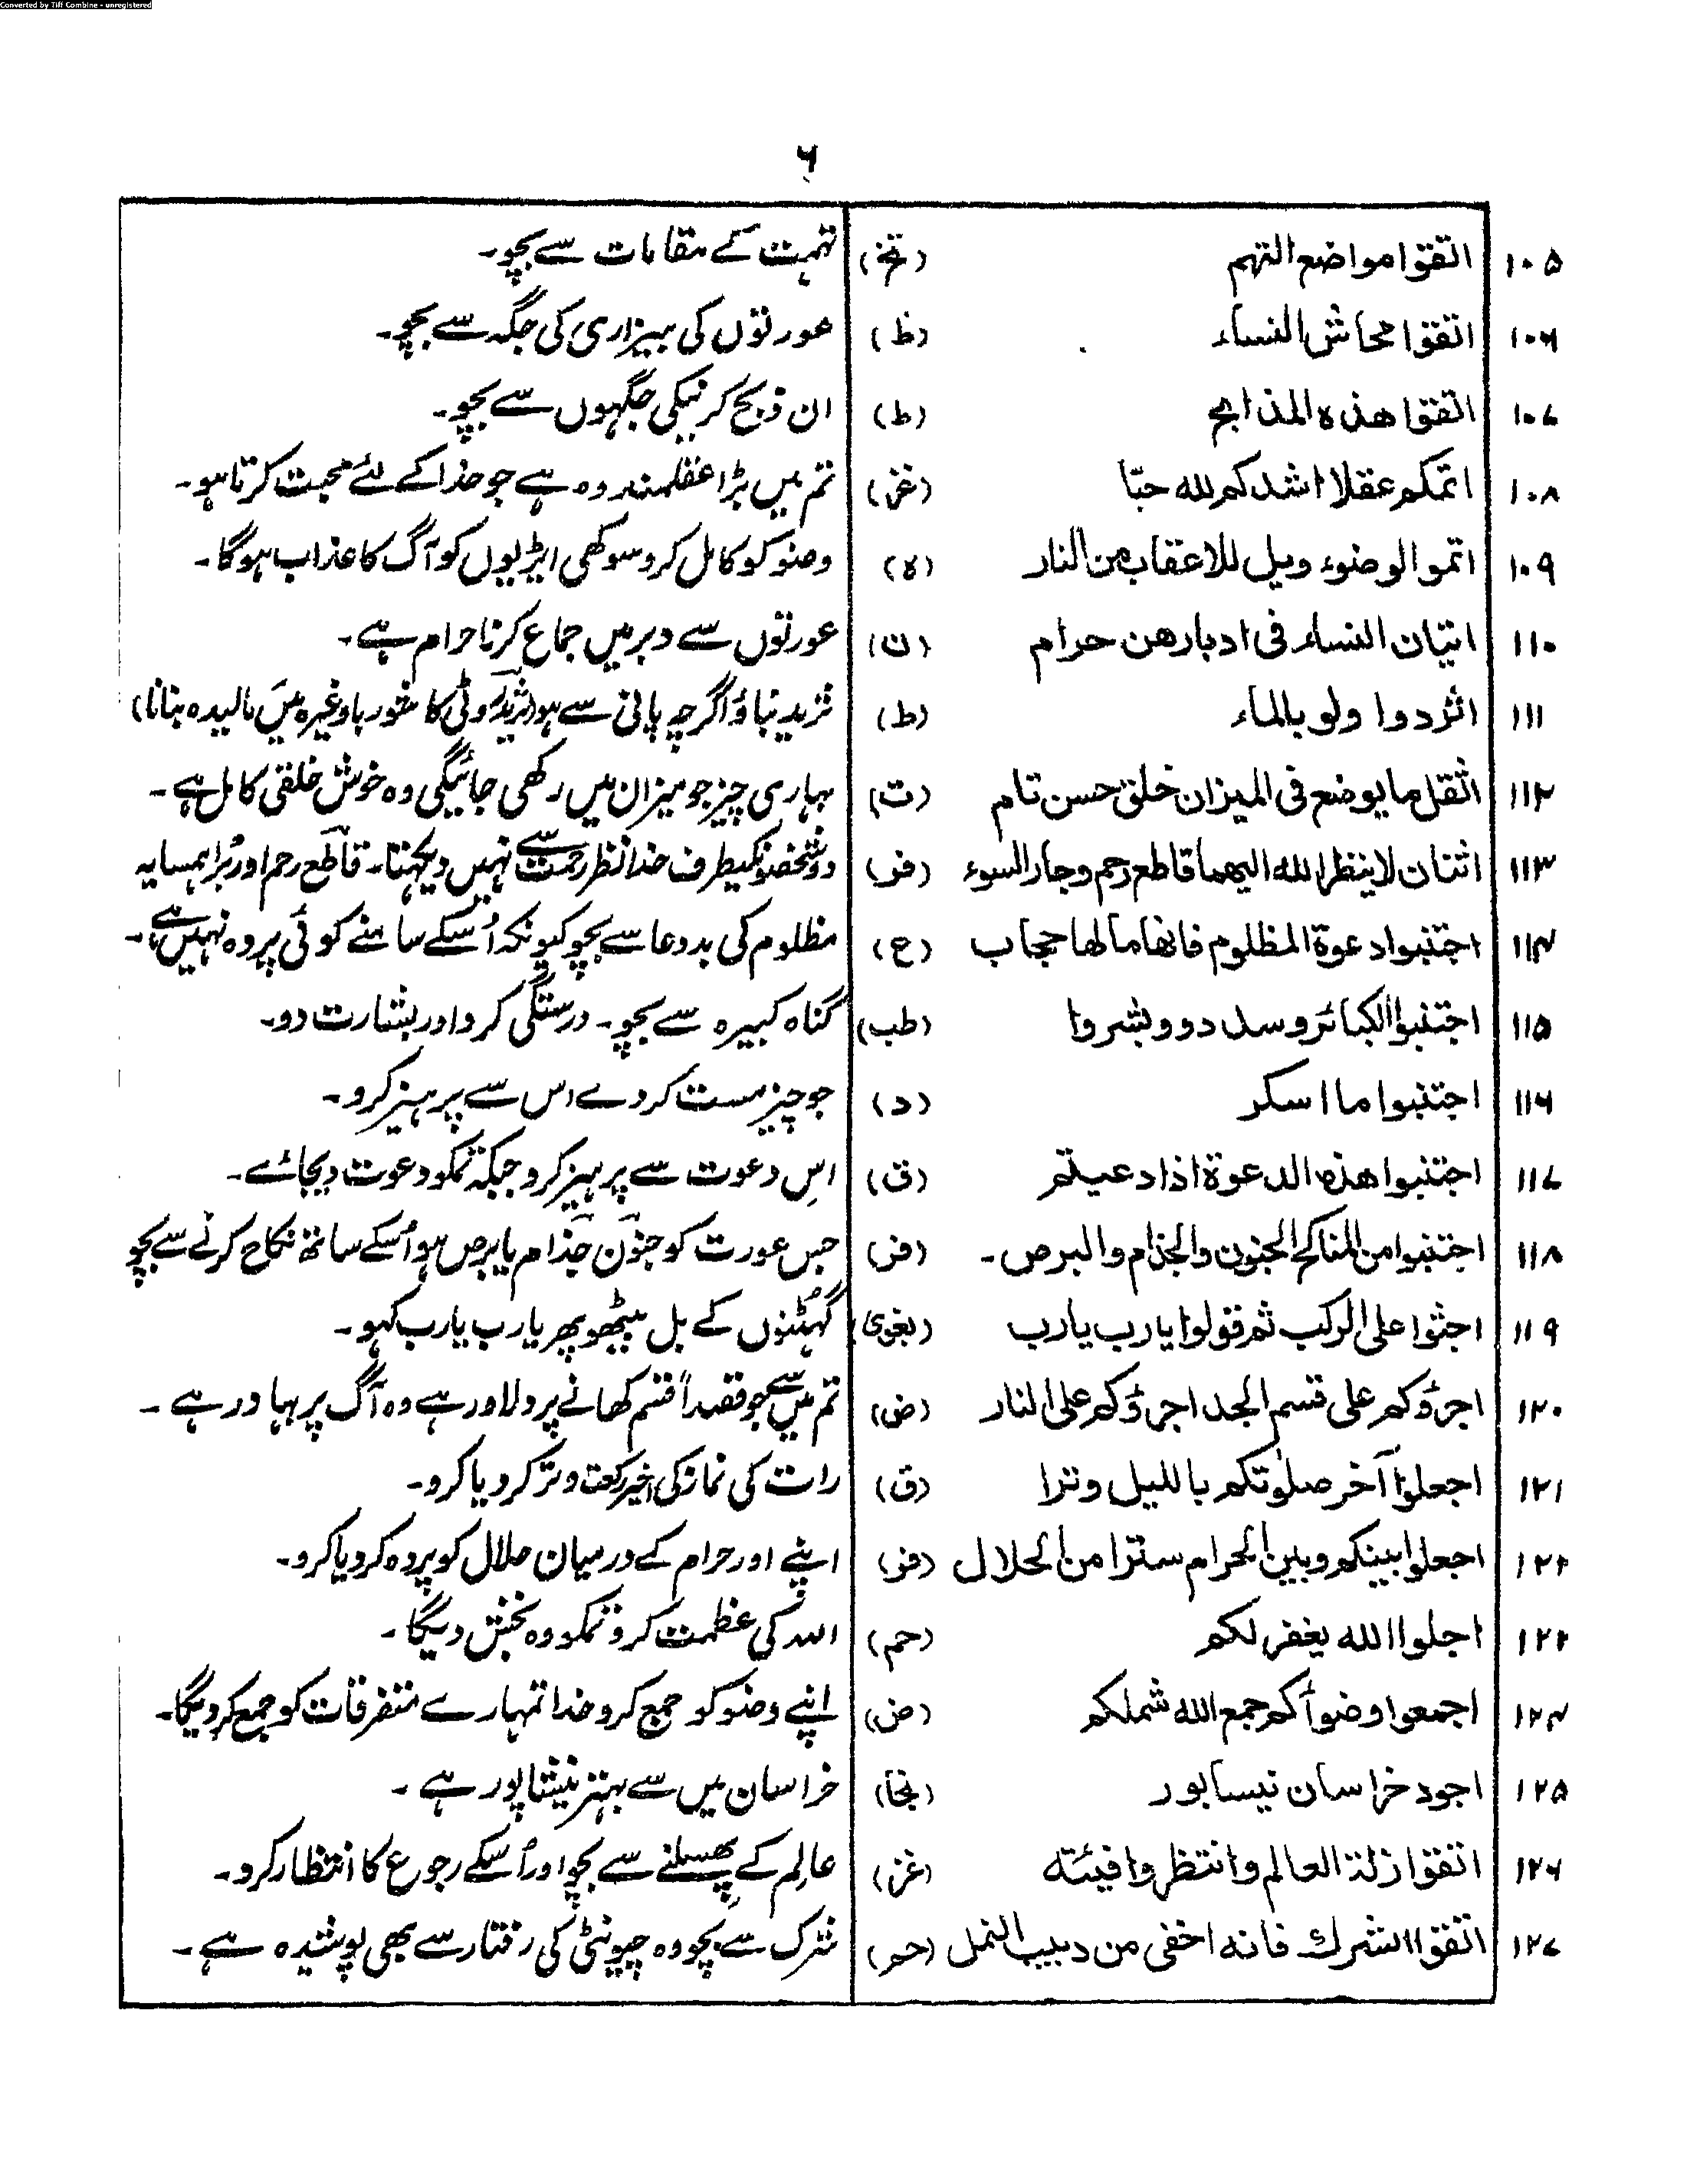 Converted by Tiff Combine - unregistered
۶
۱۰۵ اتقوا مواضع التهم (تخ) تہمت کے مقامات سے بچو۔
۱۰۶ اتقوا محاش النساء (ظ) عورتوں کی بیزاری کی جگہ سے بچو۔
۱۰۷ اتقوا هذه المذابح (ط) ان ذبح کرنیکی جگہوں سے بچو۔
۱۰۸ اتمكم عقلا اشدكم لله حبّا (غز) تم میں بڑا عقلمند وہ ہے جو خدا کے لئے محبت کرتا ہو۔
۱۰۹ اتموا لوضوء ويل للاعقاب من النار (ه) وضو کو کامل کرو سوکھی ایڑیوں کو آگ کا عذاب ہوگا۔
۱۱۰ اتيان النساء فى ادبارهن حرام (ن) عورتوں سے دبر میں جماع کرنا حرام ہے۔
۱۱۱ اثردوا ولو بالماء (ط) ثرید بناؤ اگرچہ پانی سے ہو (ثرید روٹی کا شوربا وغیرہ میں مالیدہ بنانا)
۱۱۲ اثقل ما يوضع فى الميزان خلق حسن تام (ت) بہاری چیز جو میزان میں رکھی جائیگی وہ خوش خلقی کامل ہے۔
۱۱۳ اثنان لا ينظر الله اليهما قاطع رحم وجار السوء (فر) دو شخصونکیطرف خدا نظر رحمت سے نہیں دیکہتا۔ قاطع رحم اور بُرا ہمسایہ
۱۱۴ اجتنبوا دعوة المظلوم فانها مالها حجاب (ع) مظلوم کی بددعا سے بچو کیونکہ اُسکے سامنے کوئی پردہ نہیں ہے۔
۱۱۵ اجتنبوا الكبائر وسددوا وبشروا (طب) گناہ کبیرہ سے بچو۔ درستگی کرو اور بشارت دو۔
۱۱۶ اجتنبوا ما اسكر (د) جو چیز مست کردے اس سے پرہیز کرو۔
۱۱۷ اجتنبوا هذه الدعوة اذا دعيتم (ق) اس دعوت سے پرہیز کرو جبکہ تمکو دعوت دیجائے۔
۱۱۸ اجتنبوا من المناكح الجنون والجذام والبرص۔ (فر) جس عورت کو جنون جذام یا برص ہو اُسکے ساتھ نکاح کرنے سے بچو
۱۱۹ اجثوا على الركب ثم قولوا يارب يارب (بغوى) گہٹنوں کے بل بیٹھو پھر یارب یارب کہو۔
۱۲۰ اجرؤكم على قسم الجد اجرؤكم على النار (ض) تم میں سے جو قصداً قسم کھانے پر دلاور ہے وہ آگ پر بہادر ہے۔
۱۲۱ اجعلوا آخر صلوٰتكم بالليل وترا (ق) رات کی نماز کی اخیر رکعت وتر کردیا کرو۔
۱۲۲ اجعلوا بينكم وبين الحرام سترا من الحلال (فر) اپنے اور حرام کے درمیان حلال کو پردہ کردیا کرو۔
۱۲۳ اجلوا الله يغفر لكم (حم) اللہ کی عظمت کرو تمکو وہ بخش دیگا۔
۱۲۴ اجمعوا وضوأكم جمع الله شملكم (ض) اپنے وضو کو جمع کرو خدا تمہارے متفرقات کو جمع کردیگا۔
۱۲۵ اجود خراسان نيسابور (نجا) خراسان میں سے بہتر نیشاپور ہے۔
۱۲۶ اتقوا زلة العالم وانتظروا فيئته (غز) عالِم کے پھسلنے سے بچو اور اُسکے رجوع کا انتظار کرو۔
۱۲۷ اتقوا الشرك فانه اخفى من دبيب النمل (حم) شرک سے بچو وہ چیونٹی کی رفتار سے بھی پوشیدہ ہے۔